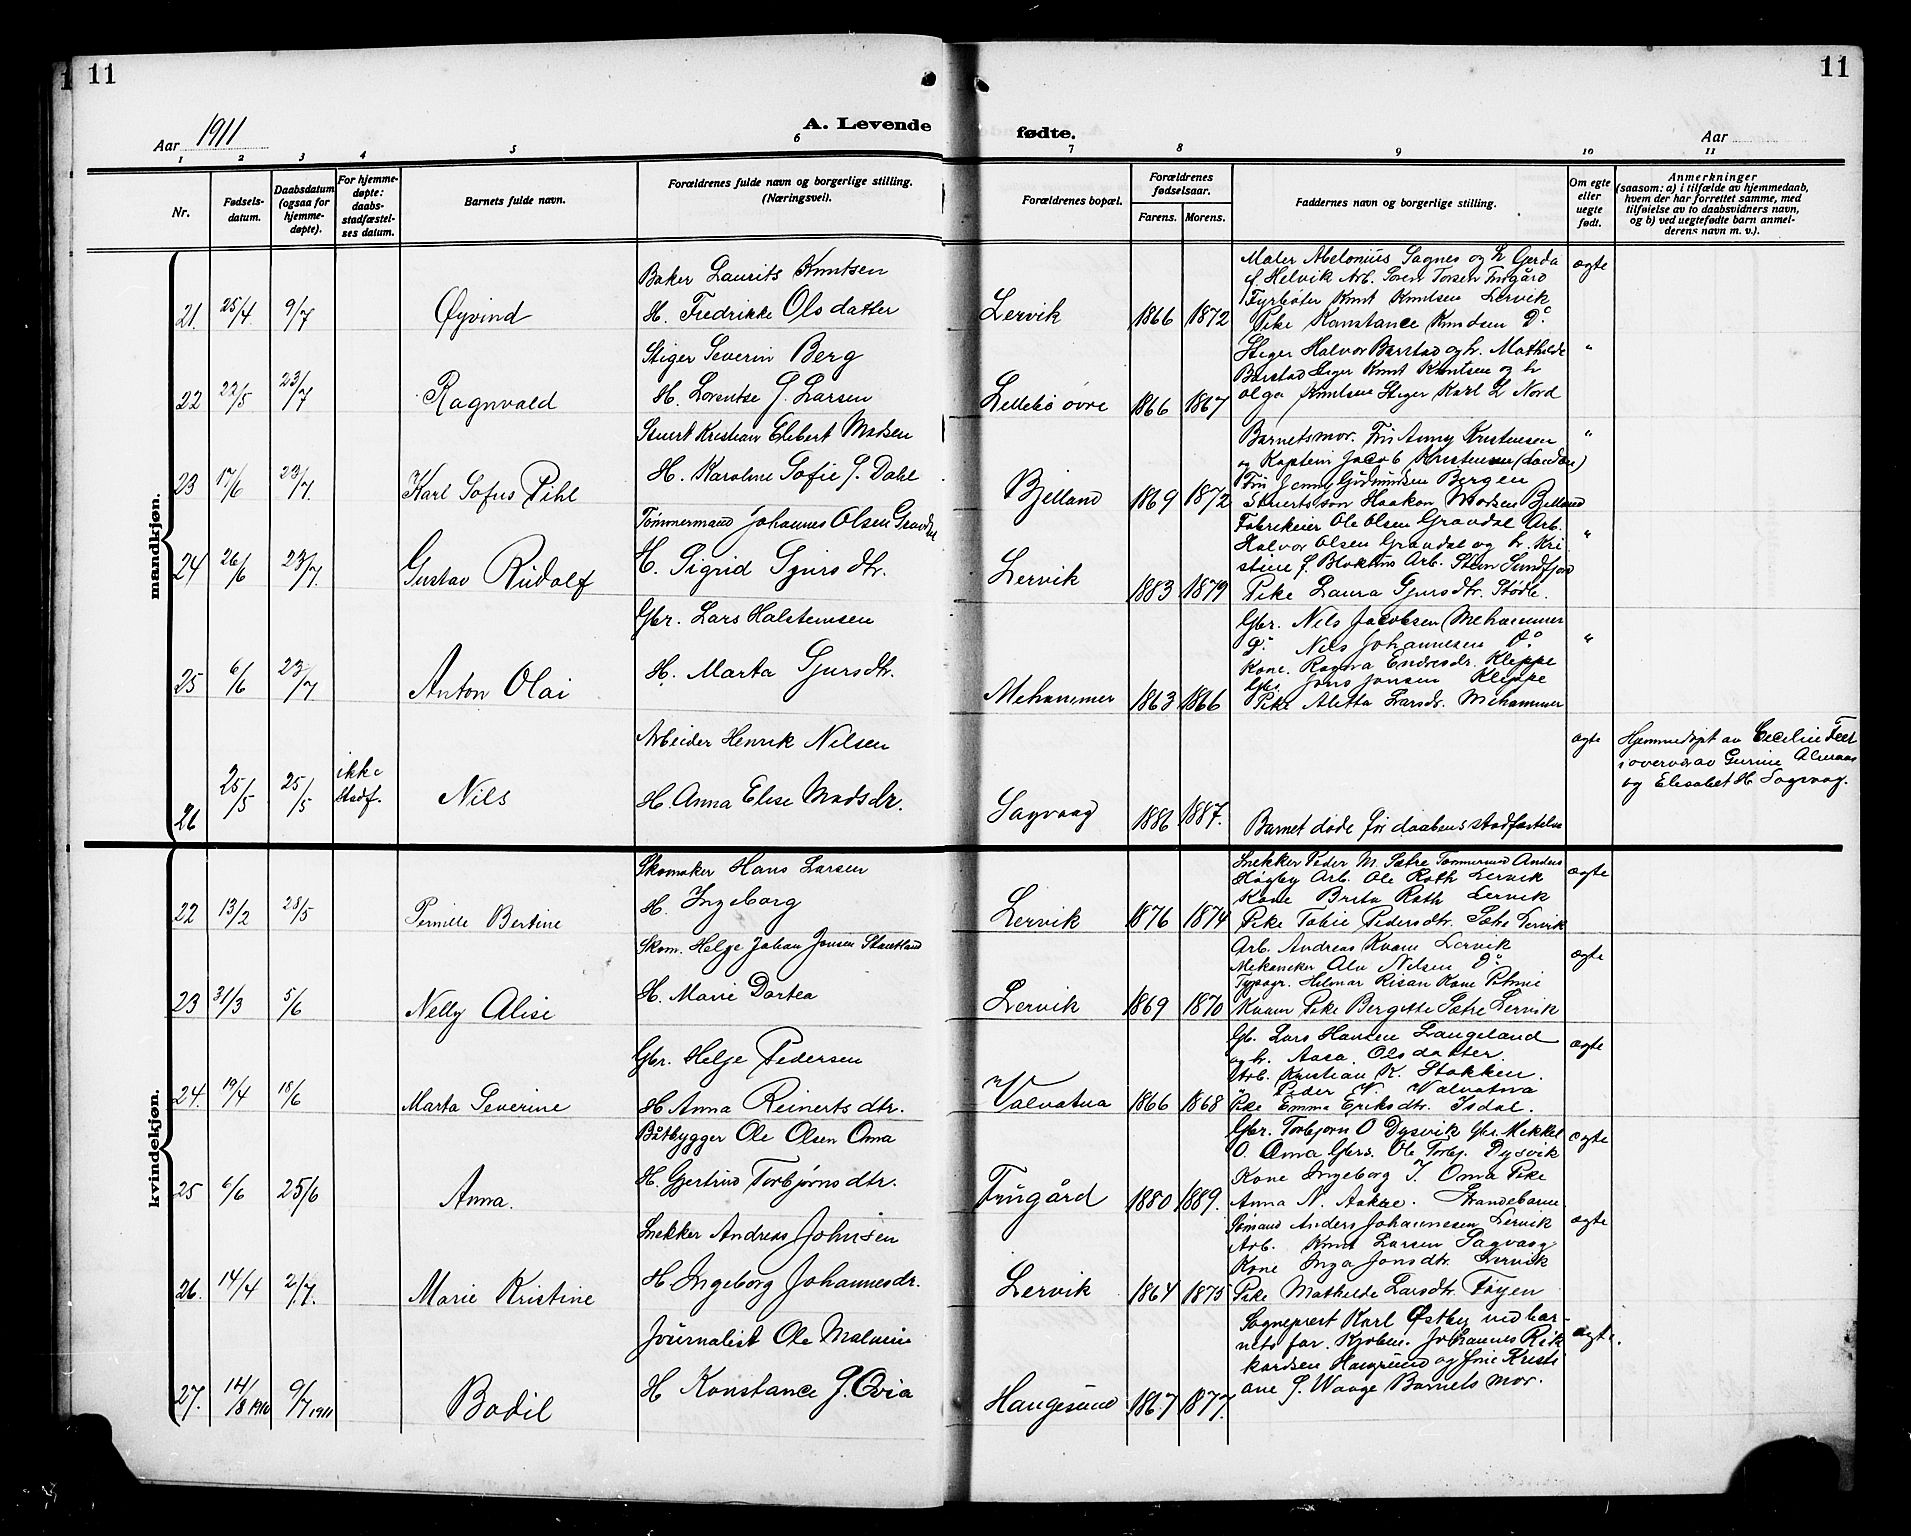 11
11
Aar 1911
A. Levende fødte.
Aar
1 2 3 4 5 6 7 8 9 10 11
Nr.
Fødsels-
datum.
Daabsdatum
(ogsaa for
hjemme-
døpte).
For hjemme-
døpte:
daabs-
stadfæstel-
ses datum.
Barnets fulde navn.
Forældrenes fulde navn og borgerlige stilling.
(Næringsvei).
Forældrenes bopæl.
Forældrenes
fødselsaar.
Farens. Morens.
Faddernes navn og borgerlige stilling.
Om egte
eller
uegte
født.
Anmerkninger
(saasom: a) i tilfælde av hjemmedaab,
hvem der har forrettet samme, med
tilføielse av to daabsvidners navn,
og b) ved uegtefødte barn anmel-
derens navn m. v.).
mandkjøn.
21. 25/4 9/7 Øyvind
Baker Laurits Knutsen
H. Fredrikke Olsdatter
Lervik 1866 1872
Maler Abelonius Sagnes og h Gerda
f. Helvik Arb. Soren Torsen Frugård
Fyrbøter Knut Knutsen Lervik
Pike Konstance Knudsen Do
ægte
22 22/5 23/7 Ragnvald
Stiger Severin Berg
H. Lorentse J. Larsen
Lillebø øvre 1866 1867
Stiger Halvor Barstad og h. Mathilde
Barstad Stiger Knut Knutsen og h
Olga Knutsen Stiger Karl L Nord
"
23 17/6 23/7. Karl Sofus Pihl
Stuert Kristian Elebert Madsen
H. Karoline Sofie f. Dahl
Bjelland 1869 1872
Barnets mor. Fru Anny Kristensen
og Kaptein Jacob Kristensen (London)
Fru Jenny Gudmundsen Bergen
Stuertssøn Haakon Madsen Bjelland
"
24 26/6 23/7. Gustav Rudolf
Tømmermand Johannes Olsen Gravdal
H. Sigrid Sjursdtr.
Lervik 1883 1879
Fabrikeier Ole Olsen Gravdal Arb.
Halvor Olsen Gravdal og h. Kri
stine f. Arb. Sten Sundfjord
Pike Laura Sjursdtr. Stødle.
"
25 6/6 23/7 Anton Olai
Gbr. Lars Halstensen
H. Marta Sjursdtr.
Mehammer 1863 1866
Gbr. Nils Jacobsen Mehammer
Do Nils Johannesen Do
Kone. Ragna Endresdr. Kleppe
Gbs. Jons Jonsen Kleppe
Pike Aletta Larsdr. Mehammer
"
26 25/5 25/5 ikke
stadf. Nils
Arbeider Henrik Nilsen
H. Anna Elise Madsdr.
Sagvaag 1886 1887.
Barnet døde før daabens stadfæstelse
ægte
Hjemmedøpt av Cecilie Feet
i overvær av Gurine Almaas
og Elisabet H. Sagvaag.
kvindekjøn.
22 13/2 28/5 Pernille Bertine
Skomaker Hans Larsen
H. Ingeborg
Lervik 1876 1874
Snekker Peder M. Sætre Tømmermd Anders
Høgby Arb. Ole Roth Lervik
Kone Brita Roth Lervik
Pike Tobie Pedersdtr. Sætre Lervik
ægte
23 31/3 5/6 Nelly Alise
Skom. Helge Johan Jensen Stautland
H. Marie Dortea
Lervik 1869 1870
Arb. Andreas Kvam Lervik
Mekaniker Alv Nilsen Do
Typogr. Hilmar Risan Kone
Kvam Pike Bergitte Sætre Lervik
ægte
24. 19/4 18/6 Marta Severine
Gbr. Helje Pedersen
H Anna Reinertsdtr.
Valvatna 1866 1868
Gb. Lars Hansen Langeland
og h. Aasa Olsdatter.
Arb. Kristian K. Stokken.
" Peder V. Valvatna
Pike Emma Eriksdtr. Isdal.
ægte
25 6/6 25/6 Anna.
Båtbygger Ole Olsen Oma
H. Gjertrud Torbjørnsdtr.
Frugård 1880 1889.
Gbr. Torbjorn O Dysvik Gbr. Mikkel
O. Oma Gbrs. Ole Torbj. Dysvik
Kone Ingeborg I. Oma Pike
Anna N. Aakre. Strandebarm
ægte
26. 14/4 2/7. Marie Kristine
Snekker Andreas Johnsen
H Ingeborg Johannesdr.
Lervik 1864 1875
Sømand Anders Johannesen Lervik
Arb. Knut Larsen Sagvaag
Kone Inga Jonsdtr. Lervik
Pike Mathilde Larsdtr. Føyen
ægte
27. 14/8 1910 9/7 1911 Bodil
Journalist Ole Malveine
H Konstance f. Qvia
Haugesund 1867 1877.
Sogneprest Karl Østby ved bar-
nets far. Kjøbm. Johannes Rik
kardsen Haugesund og Frue Kristi
ane f. Waage Barnets mor.
ægte.